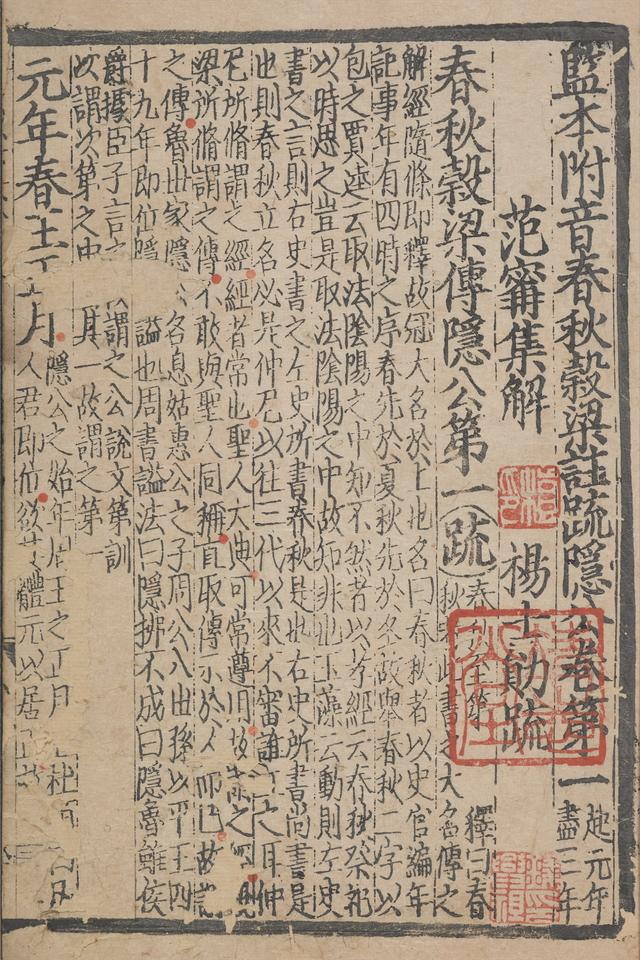 監本附音春秋穀梁註疏隱公卷第一 起元年
盡三年
范甯集解 楊士勛疏
春秋穀梁傳隱公第一 疏 春秋 第一 釋曰春
秋 此書之大名傳之
解經隨條即釋故冠大名於上也名曰春秋者以史官編年
記事年有四時之序春先於夏秋先於冬故舉春秋二字以
包之賈逵云取法陰陽之中知不然者以孝經云春秋祭祀
以時思之豈是取法陰陽之中故知非也玉藻云動則左史
書之言則右史書之左史所書春秋是也右史所書尚書是
也則春秋立名必是仲尼以往三代以來不審誰立之耳仲
尼所脩謂之經經者常也聖人大典可常遵用故
梁所脩謂之傳不敢與聖人同稱直取傳示於人而已故
之傳魯世家隱公名息姑惠公之子周公八世孫以平王四
十九年即位隱 謚也周書謚法曰隱拂不成曰隱魯雖侯
爵據臣子言之 謂之公說文第訓
次謂次第之中 其一故謂之第一
元年春王正月 隱公之始年周王之正月
人君即位欲其體元以居正